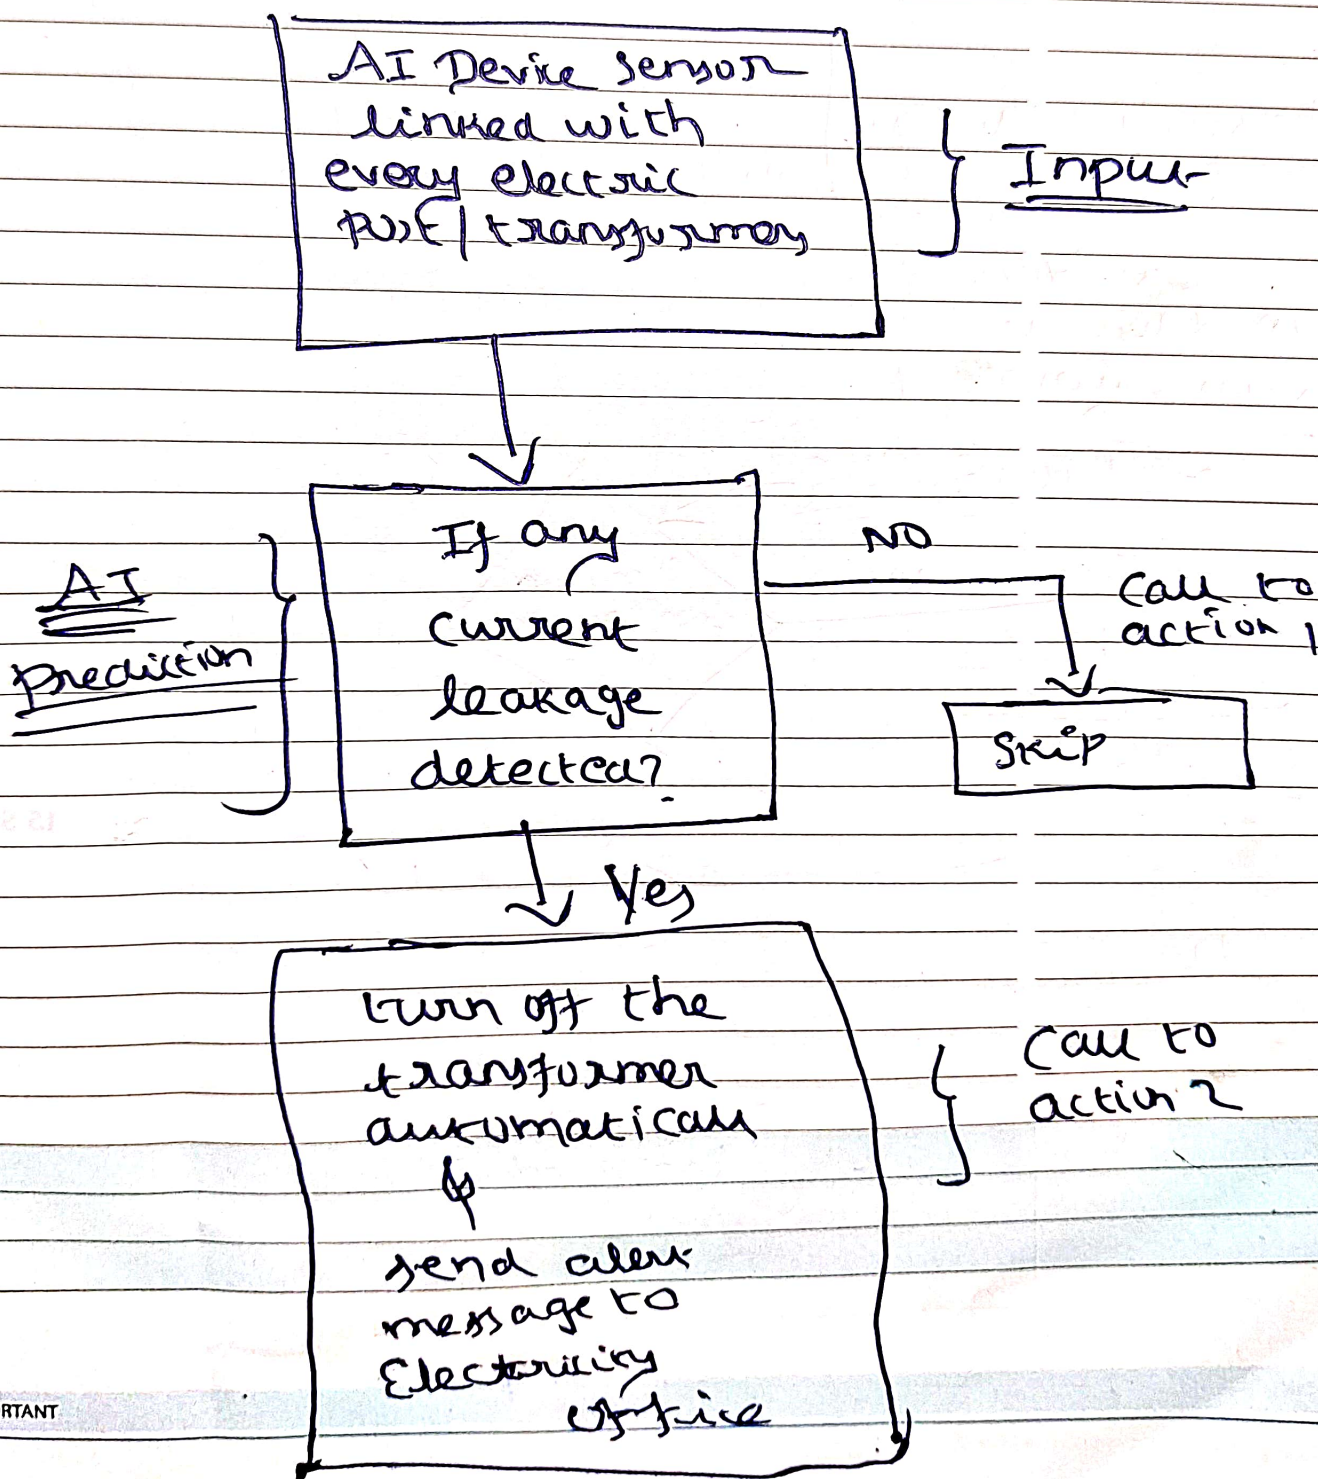 AI Device sensor
linked with
every electric
post/transformer
Input
If any
current
leakage
detected?
AI
Prediction
NO
Call to
action 1
Skip
Yes
turn off the
transformer
automaticall
&
send alert
message to
Electricity
office
Call to
action 2
RTANT